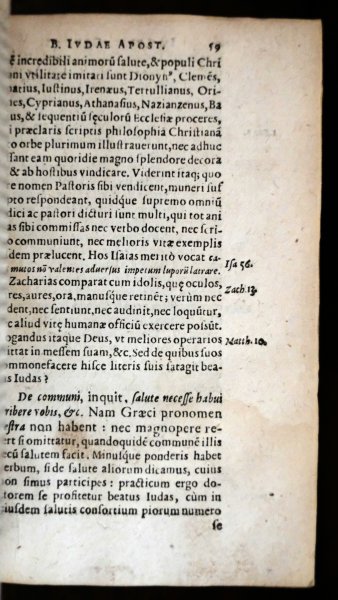 B. IVDAE APOST. 59
ē incredibili animorū salute, & populi Chri
ni vtilitate imitati sunt Dionyſ⁹, Clemēs,
natius, Iustinus, Irenæus, Terrullianus, Ori-
nes, Cyprianus, Athanasius, Nazianzenus, Ba
us, & sequentiū sęculorū Ecclesiæ proceres,
i præclaris scriptis philosophia Christianā
o orbe plurimum illustrauerunt, nec adhuc
sant eam quotidie magno splendore decora
& ab hostibus vindicare. Viderint itaq; quo
re nomen Pastoris sibi vendicent, muneri suf
pto respondeant, quidque supremo omniū
dici ac pastori dicturi sunt multi, qui tot ani
as sibi commissas nec verbo docent, nec scri-
o communiunt, nec melioris vitæ exemplis
idem prælucent. Hos Isaias meritò vocat ca
mutos nō valentes aduersus impetum luporū latrare. Isa 56.
Zacharias comparat cum idolis, quę oculos,
res, aures, ora, manusque retinēt; verùm nec Zach. 13.
dent, nec sentiunt, nec audinit, nec loquūtur,
c aliud vitę humanæ officiū exercere possūt.
ogandus itaque Deus, vt meliores operarios Matth. 10.
ittat in messem suam, &c. Sed de quibus suos
ommonefacere hisce literis suis satagit bea-
s Iudas?
De communi, inquit, salute necesse habui
ribere vobis, &c. Nam Græci pronomen
estra non habent: nec magnopere re-
ert si omittatur, quandoquidē communē illis
ecū salutem facit. Minusque ponderis habet
erbum, si de salute aliorum dicamus, cuius
on simus participes: practicum ergo do-
torem se profitetur beatus Iudas, cùm in
iusdem salutis consortium piorum numero
se